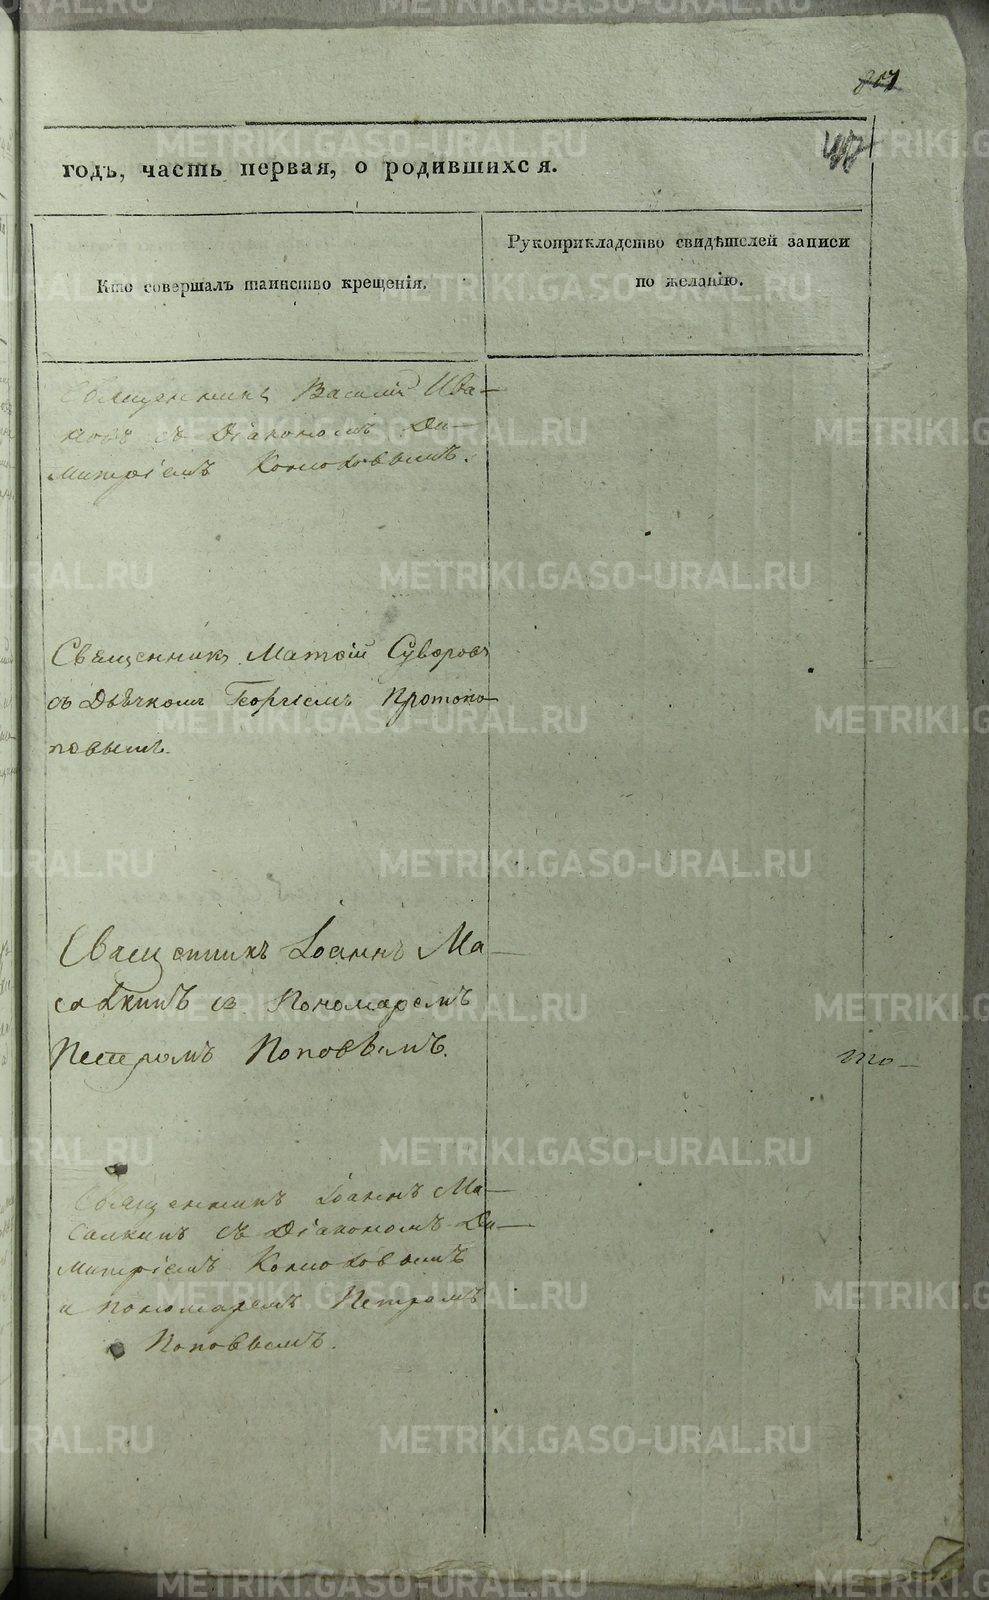 годъ, часть первая, о родившихся.
Кто совершалъ таинство крещенія.
Рукоприкладство свидѣтелей записи
по желанію.
Священникъ Василій Ива-
новъ съ Діакономъ Ди-
митріемъ Конюховымъ.
Священникъ Матѳій Суворовъ
съ Дьячкомъ Георгіемъ Протопо-
повымъ.
Священникъ Іоаннъ Ма-
съ Пономаремъ
Петромъ Поповымъ.
то-
Священникъ Іоаннъ Ма-
салкинъ съ Діакономъ Ди-
митріемъ Конюховымъ
и пономаремъ Петромъ
Поповымъ.
METRIKI.GASO-URAL.RU